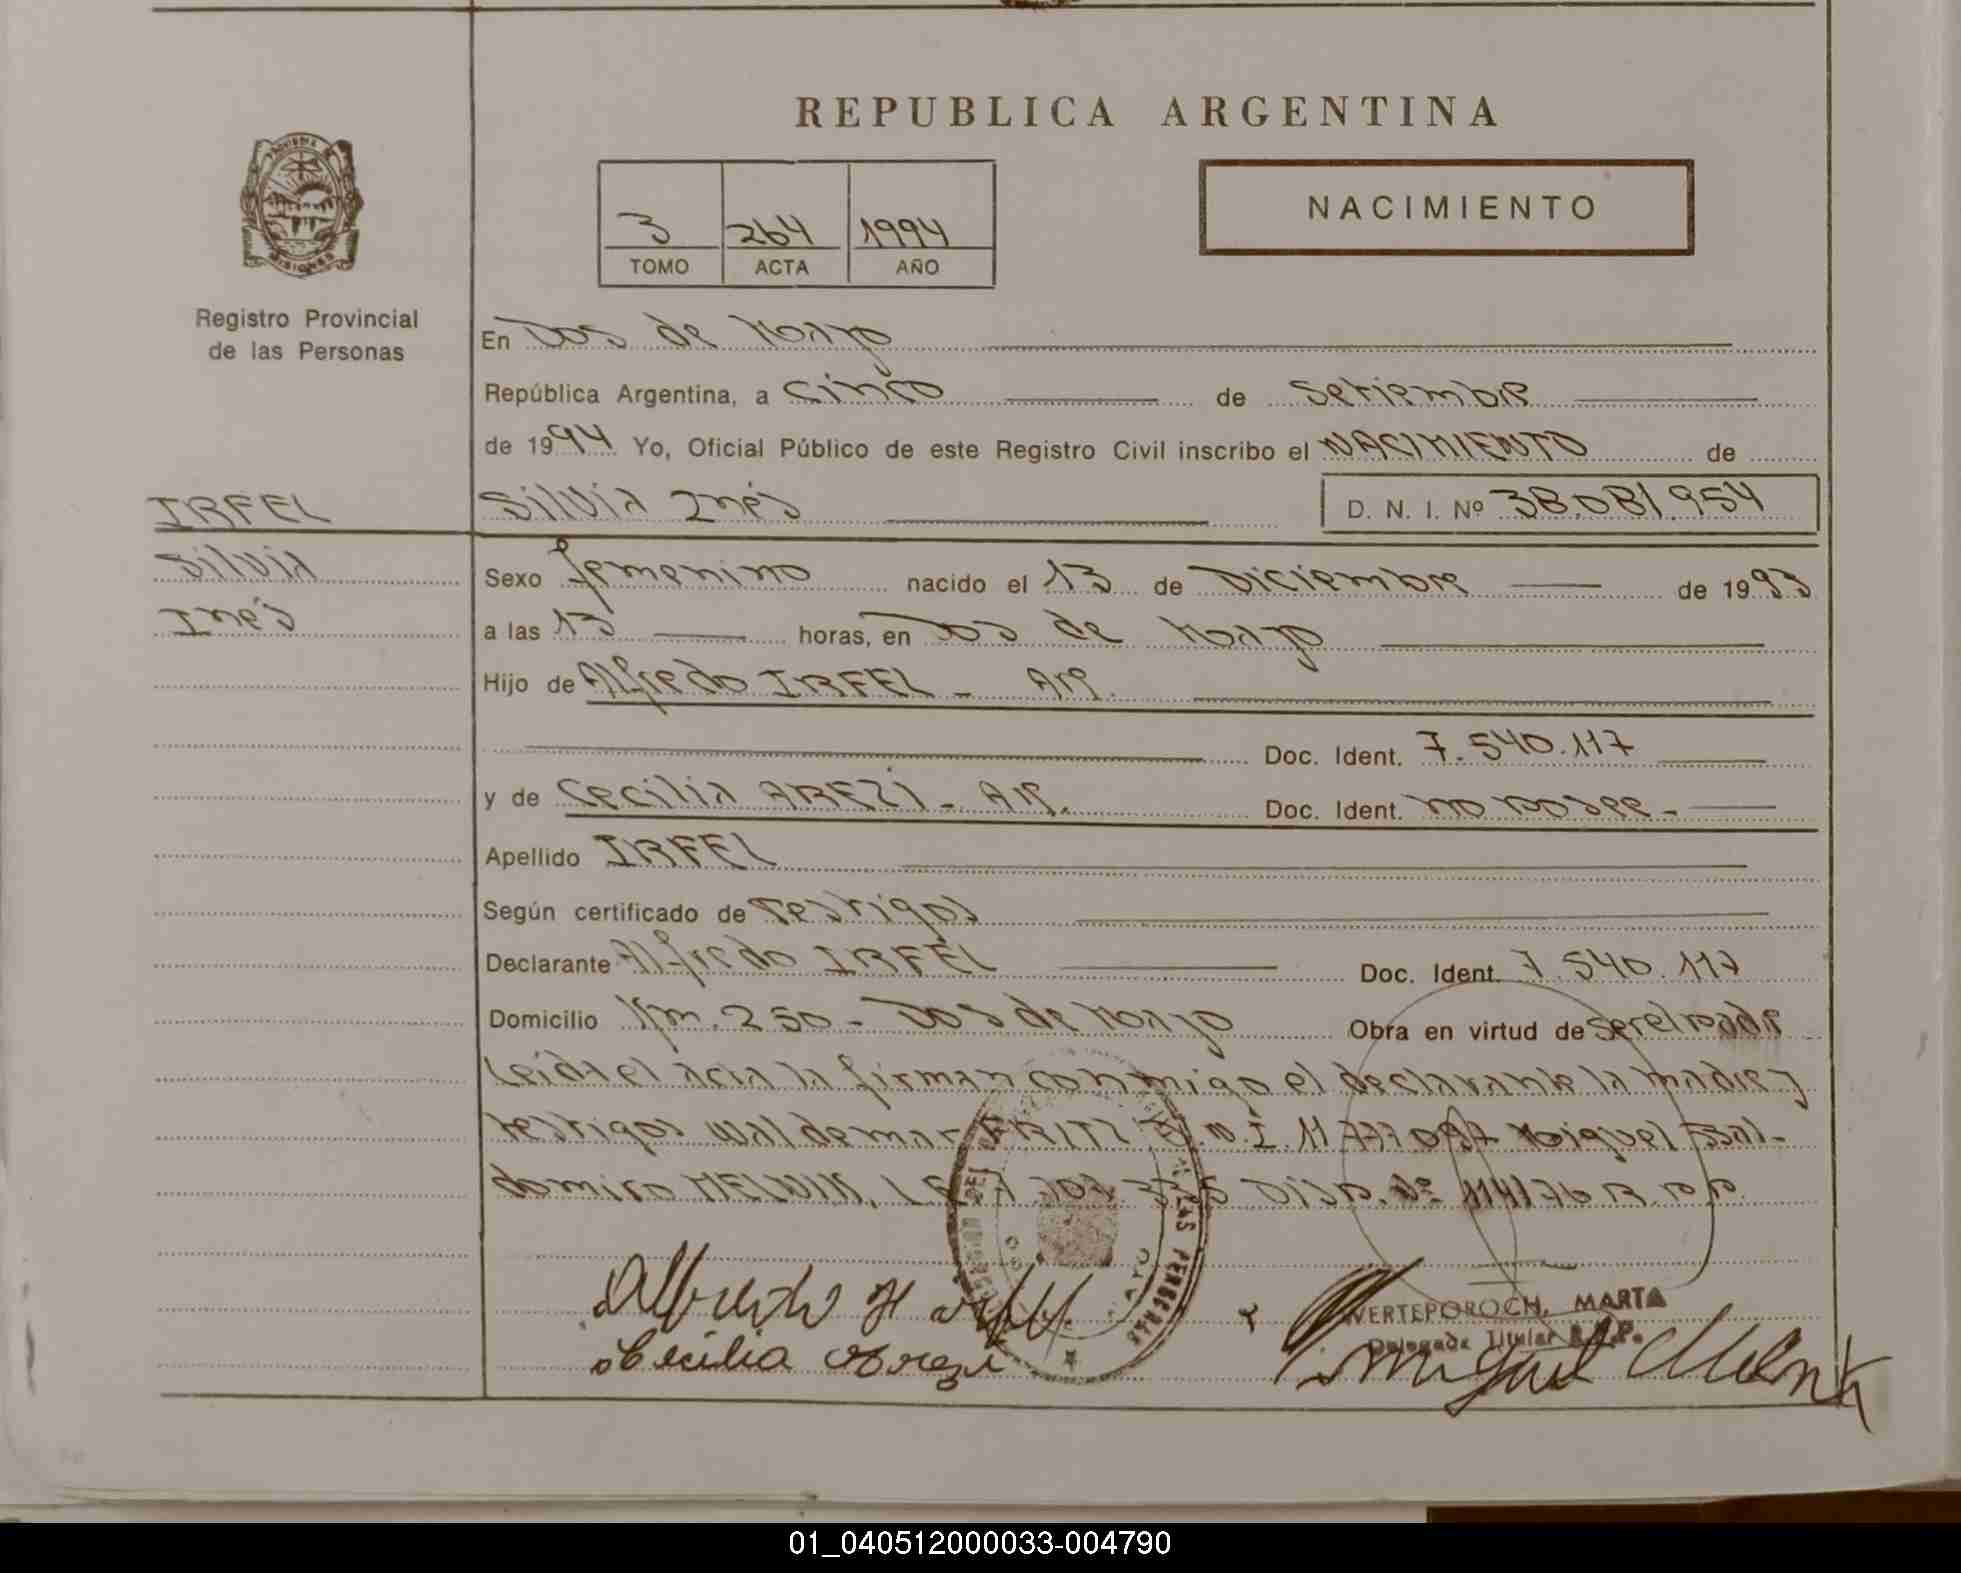 REPUBLICA ARGENTINA
PROVINCIA DE
MISIONES
Registro Provincial
de las Personas
NACIMIENTO
3 264 1994
TOMO ACTA AÑO
En Dos de Mayo
República Argentina, a cinco de setiembre
de 1994 Yo, Oficial Público de este Registro Civil inscribo el NACIMIENTO de
IRFEL
Silvia
Inés
Silvia Inés D. N. I. Nº 38.081.954
Sexo femenino nacido el 13 de Diciembre de 1993
a las 13 horas, en Dos de Mayo
Hijo de Alfredo IRFEL - Arg.
Doc. Ident. 7.540.117
y de Cecilia AREZI - Arg. Doc. Ident. no posee -
Apellido IRFEL
Según certificado de testigos
Declarante Alfredo IRFEL Doc. Ident. 7.540.117
Domicilio Km. 250 - Dos de Mayo Obra en virtud de ser el padre
Leida el acta la firman conmigo el declarante la madre y
testigos Waldemar FRITZ D.N.I. 11.777.097 Miguel Bal-
domiro L.E. 7 Disp. Nº 1141/76 R.P.P.
Alfredo
Cecilia Arezi
WERTEPOROCH, MARTA
Delegada Titular R.P.P.
Miguel
01_040512000033-004790